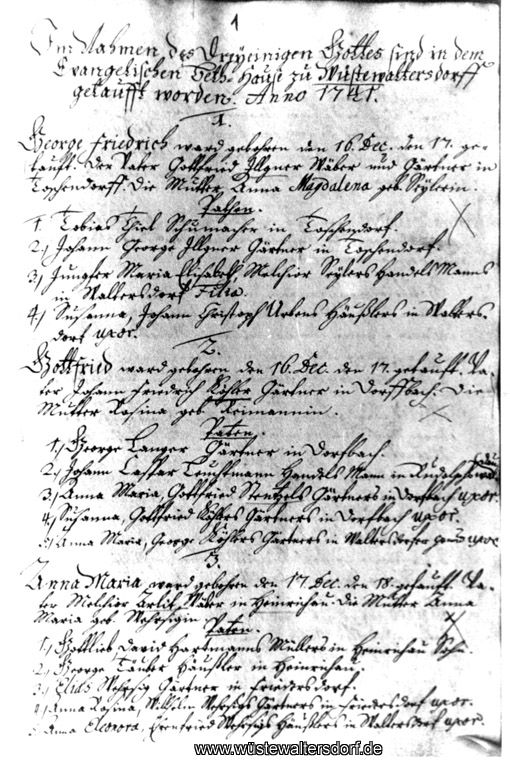 1
Im Nahmen des Dreyeinigen Gottes sind in dem
Evangelischen Beth-Hause zu Wüstewaltersdorff
getaufft worden. Anno 1741.
1.
George Friedrich ward gebohren den 16. Dec. den 17. ge-
tauft. Der Vater Gottfried Illgner Wäber und Gärtner in
Toschendorff. Die Mutter, Anna Magdalena geb. Seylerin.
Pathen.
1. Tobias Thiel Schumacher in Toschendorf.
2.) Johann George Illgner Gärtner in Toschendorf.
3.) Jungfer Maria Elisabeth Melchior Seylers Handels Manns
in Waltersdorf Filia.
4.) Susanna, Johann Christoph Häußlers in Walters-
dorf uxor.
2.
Gottfried ward gebohren den 16. Dec. den 17. getauft. Va-
ter Johann Friedrich Köhler Gärtner in Dorffbach. Die
Mutter Rosina geb. Reimannin.
Paten.
1.) George Langer Gärtner in Dorfbach.
2.) Johann Caspar Handels Mann in
3.) Anna Maria, Gottfried Stentzels Gärtners in Dorfbach uxor.
4.) Susanna, Gottfried Köhlers Gärtners in Dorfbach uxor.
5.) Anna Maria, George Köhlers Gärtners in uxor
3.
Anna Maria ward gebohren den 17. Dec. den 18. getauft. Va-
ter Melchior Wäber in Heinrichau. Die Mutter Anna
Maria geb.
Paten.
1.) Gottlieb David Hartmanns Müllers in Heinrichau Sohn.
2.) George Täuber Häußler in Heinrichau.
3.) Elias Gärtner in Friedersdorf.
4.) Anna Rosina, Wilhelm Gärtners in Friedersdorf uxor.
5. Anna Eleonora, Ehrenfried Häußlers in Waltersdorf uxor.
www.wüstewaltersdorf.de